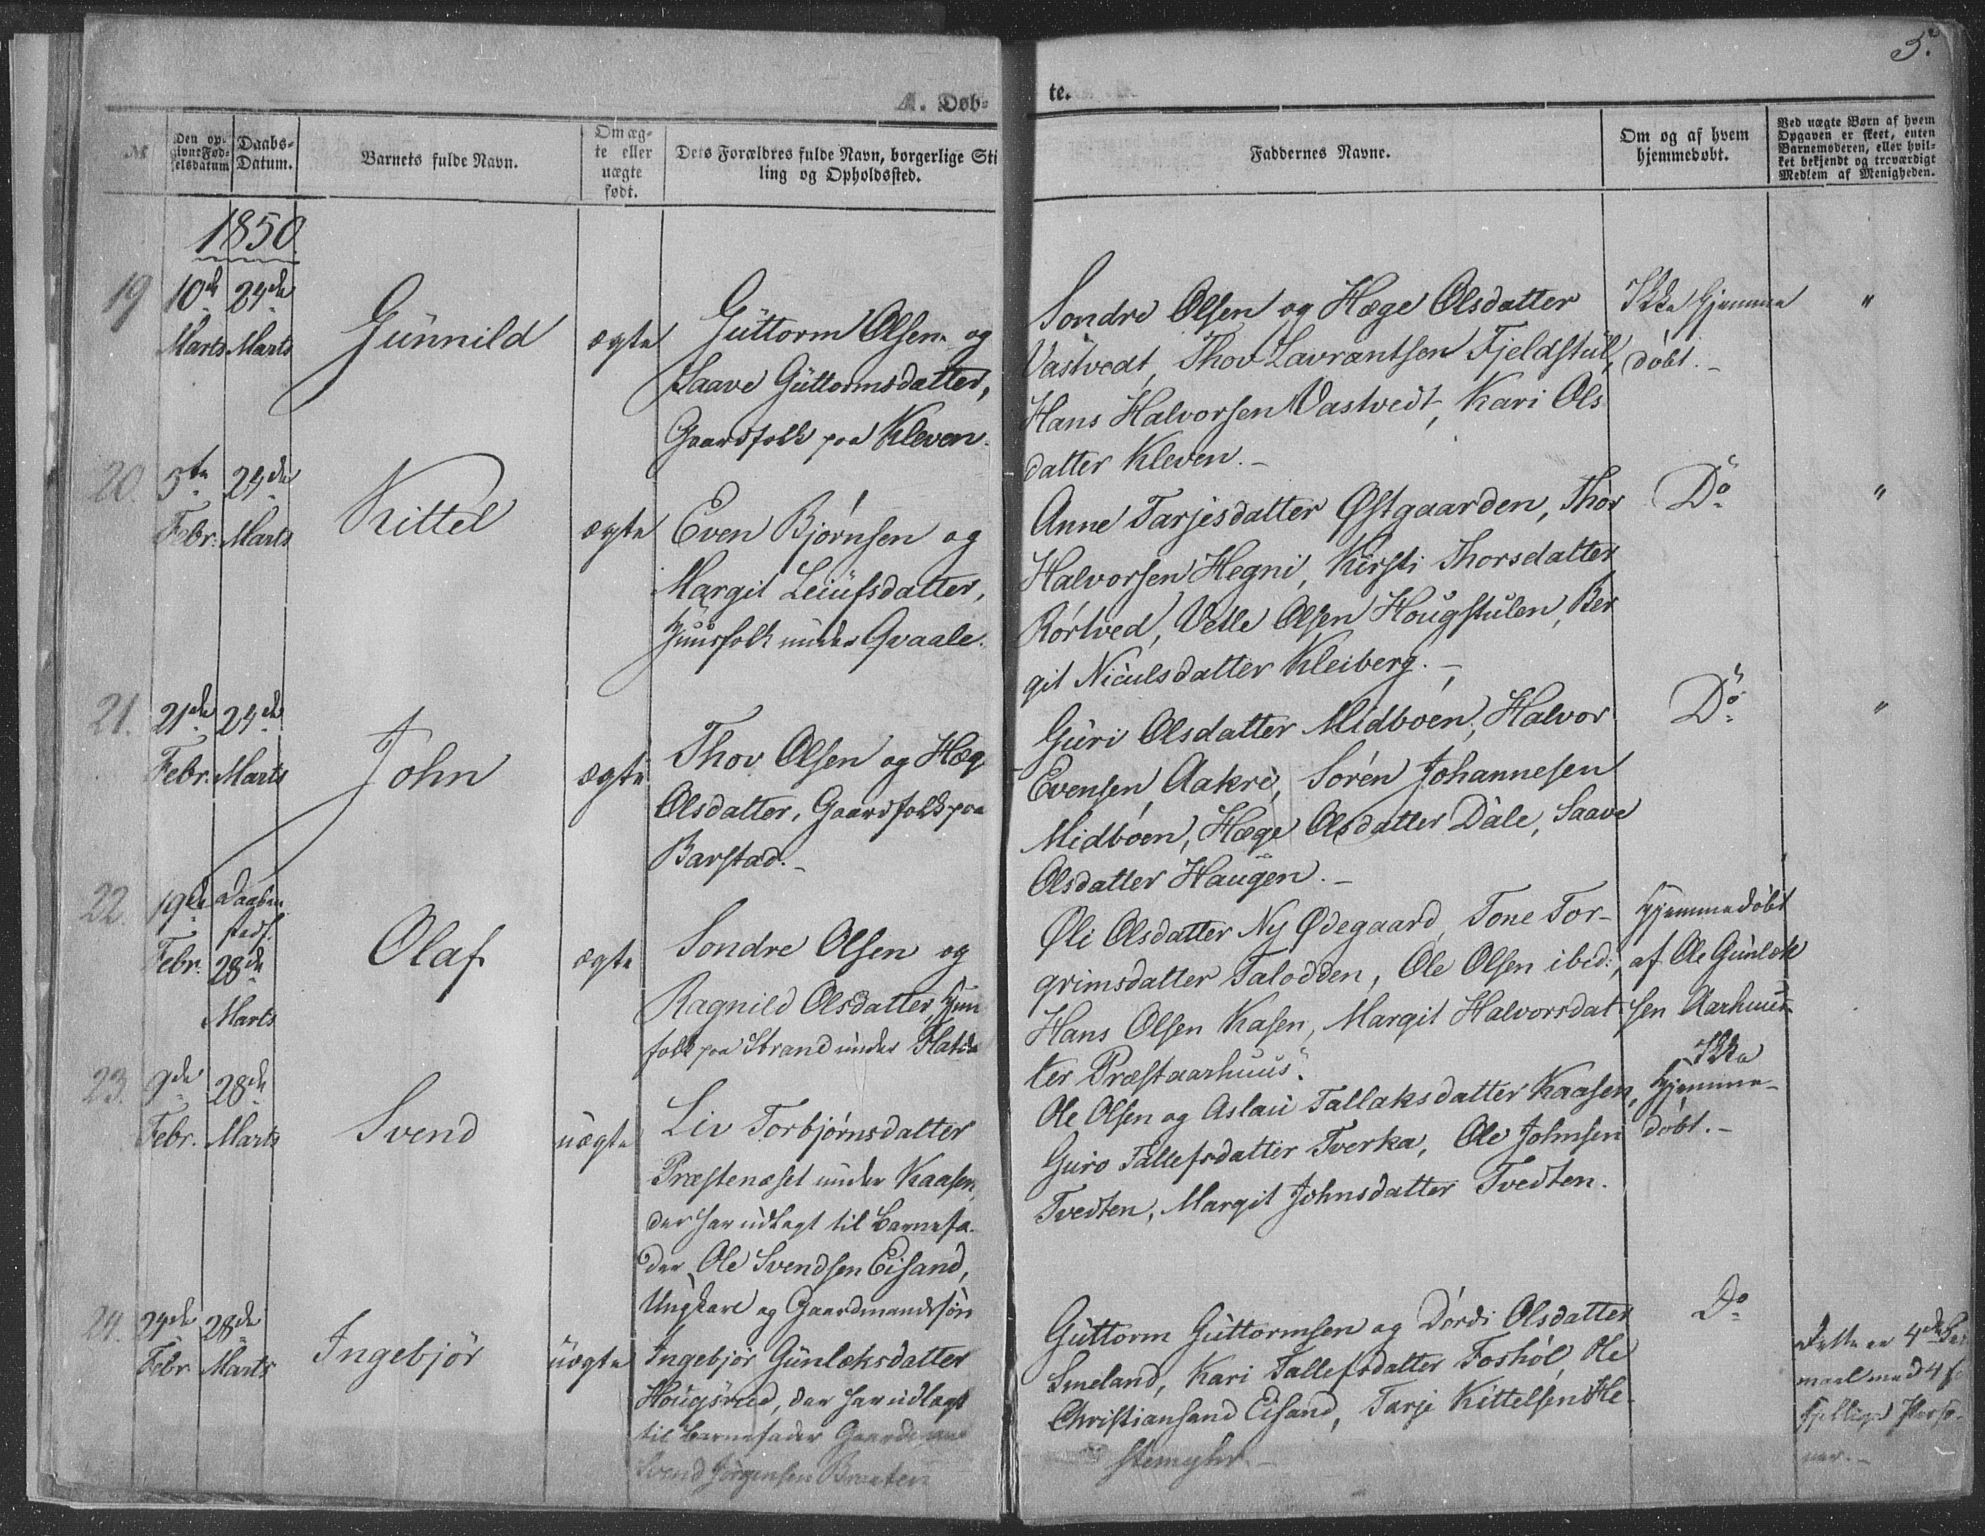 3.
A. Døb-
te.
№
Den op-
givne Fød-
selsdatum
Daabs-
Datum.
Barnets fulde Navn.
Om æg-
te eller
uægte
født.
Dets Forældres fulde Navn, borgerlige Sti
ling og Opholdssted.
Faddernes Navne.
Om og af hvem
hjemmedøbt.
Ved uægte Børn af hvem
Opgaven er skeet, enten
Barnemoderen, eller hvil-
ket bekjendt og troværdigt
Medlem af Menigheden.
1850.
19
10de
Marts
24de
Marts
Gunnild
ægte
Guttorm Olsen og
Saave Guttormsdatter,
Gaardfolk paa Kleven.
Sondre Olsen og Hæge Olsdatter
Vastvedt, Thov Lavrantsen Fjeldstul,
Hans Halvorsen Vastvedt, Kari Ols
datter Kleven.-
Ikke Hjemme
døbt.-
"
20.
5te
Febr.
24de
Marts
Kittel
ægte
Even Bjørnsen og
Margit Leiufsdatter,
Huusfolk under Qvaale.
Anne Tarjesdatter Østgaarden, Thor
Halvorsen Hegni, Kirsti Thorsdatter
Rørtved, Vetle Olsen Hougstulen, Ber
git Niculsdatter Kleiberg.-
Do
"
21.
21de
Febr.
24de
Marts
John
ægte
Thov Olsen og Hæge
Olsdatter, Gaardfolk paa
Barstad.-
Guri Olsdatter Midbøen, Halvor
Evensen Aakre, Søren Johannesen
Midbøen, Hæge Olsdatter Dale, Saave
Olsdatter Haugen.-
Do
"
22.
19de
Febr.
Daaben
stadf.
28de
Marts
Olaf
ægte
Sondre Olsen og
Ragnild Olsdatter, Huus
folk paa Strand under Flatda
Øli Olsdatter Ny Ødegaard, Tone Tor-
grimsdatter Talodden, Ole Olsen ibid.,
Hans Olsen Kasen, Margit Halvorsdat
ter Præstaarhuus.
Hjemmedøbt
af Ole Gunlek
sen Aarhuus
23.
9de
Febr.
28de
Marts
Svend
uægte
Liv Torbjørnsdatter
Præstenæset under Kaasen
der har udlagt til Barnefa-
der Ole Svendsen Eisand,
Ungkarl og Gaardmandssøn
Ole Olsen og Aslau Tallaksdatter Kaasen,
Guro Tallefsdatter Tverka, Ole Johnsen
Tvedten, Margit Johnsdatter Tvedten.
Ikke
Hjemme-
døbt.-
24.
24de
Febr
28de
Marts
Ingebjør
uægte
Ingebjør Gunleksdatter
Hougsrud, der har udlagt
til Barnefader Gaardmand
Svend Jørgensen Braaten
Guttorm Guttormsen og Dordi Olsdatter
Smeland, Kari Tallefsdatter Foshol, Ole
Christiansand Eisand, Tarje Kittelsen He-
stemyhr.-
Do
Dette er 4de Lei
maal med 4 for
skjellige Perso-
ner.-